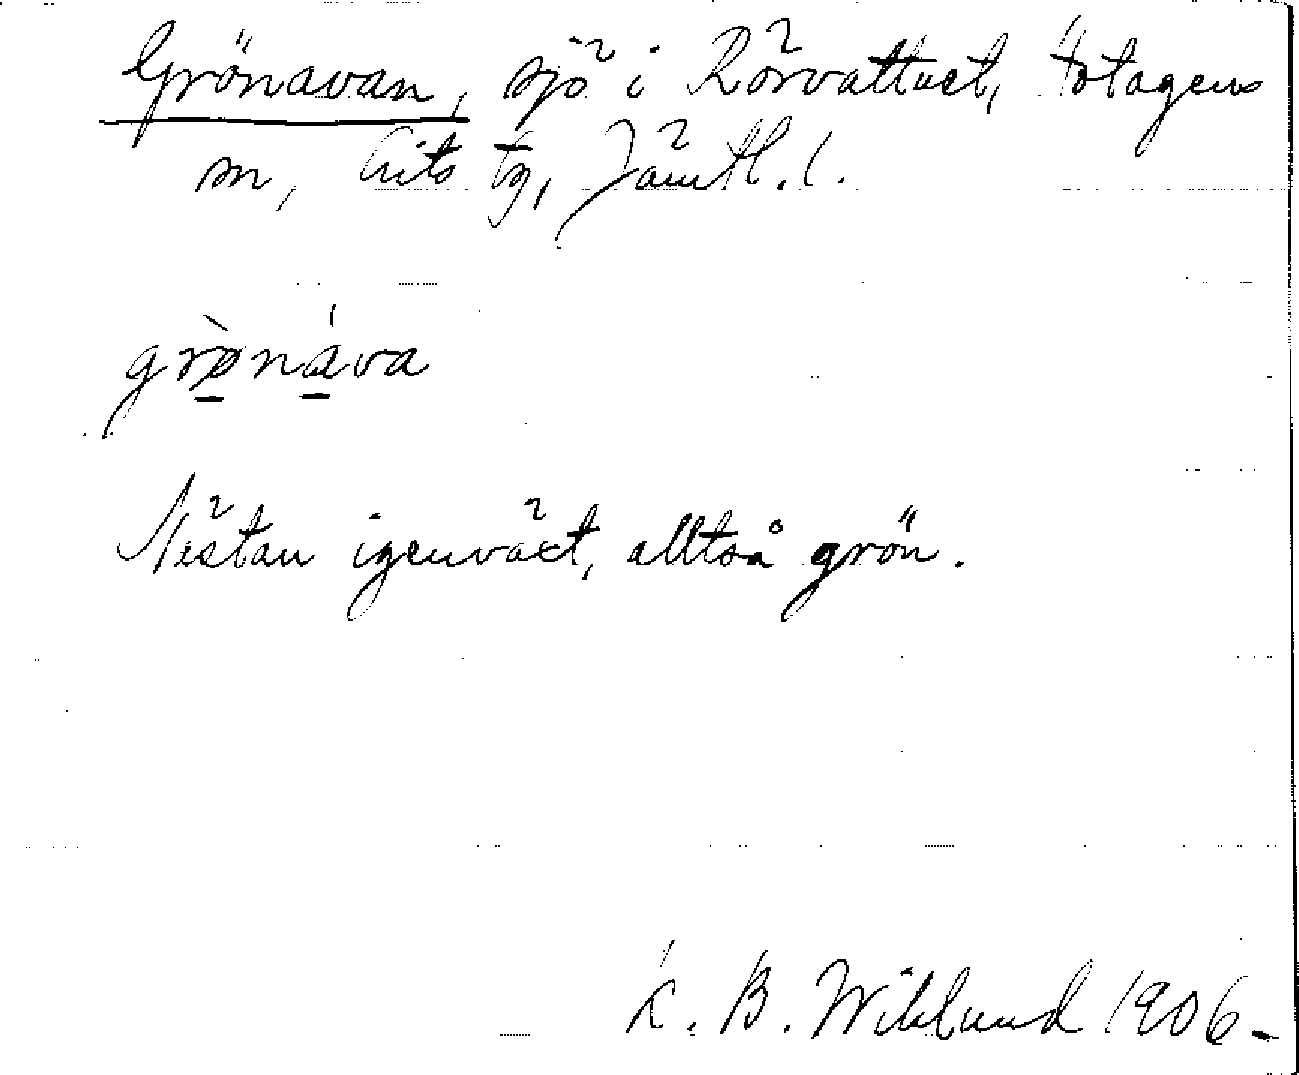 Grönavan, sjö i Rörvattnet, Hotagens
sn, Lits tg, Jämtl. l.
grø̀náva
Nästan igenväxt, alltså grön.
K. B. Wiklund 1906.